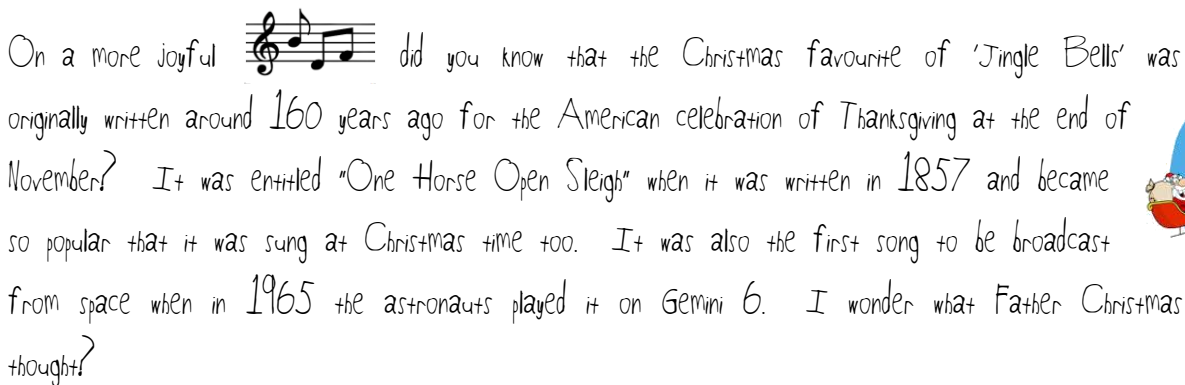 On a more joyful did you know that the Christmas favourite of 'Jingle Bells' was
originally written around 160 years ago for the American celebration of Thanksgiving at the end of
November? It was entitled "One Horse Open Sleigh" when it was written in 1857 and became
so popular that it was sung at Christmas time too. It was also the first song to be broadcast
from space when in 1965 the astronauts played it on Gemini 6. I wonder what Father Christmas
thought?